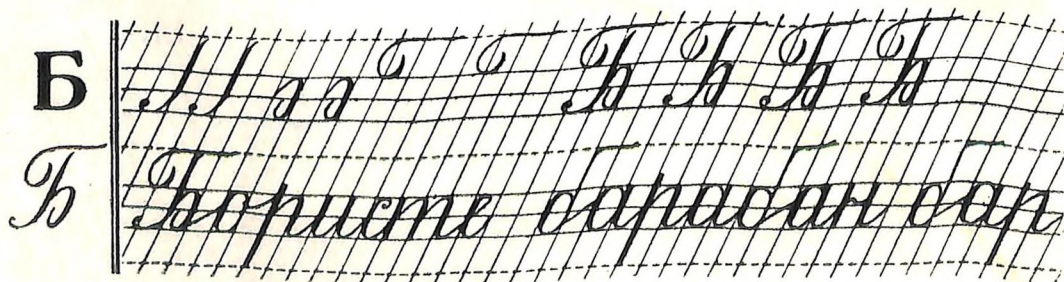 Б Б Б Б Б
Б Бористе барабан бар